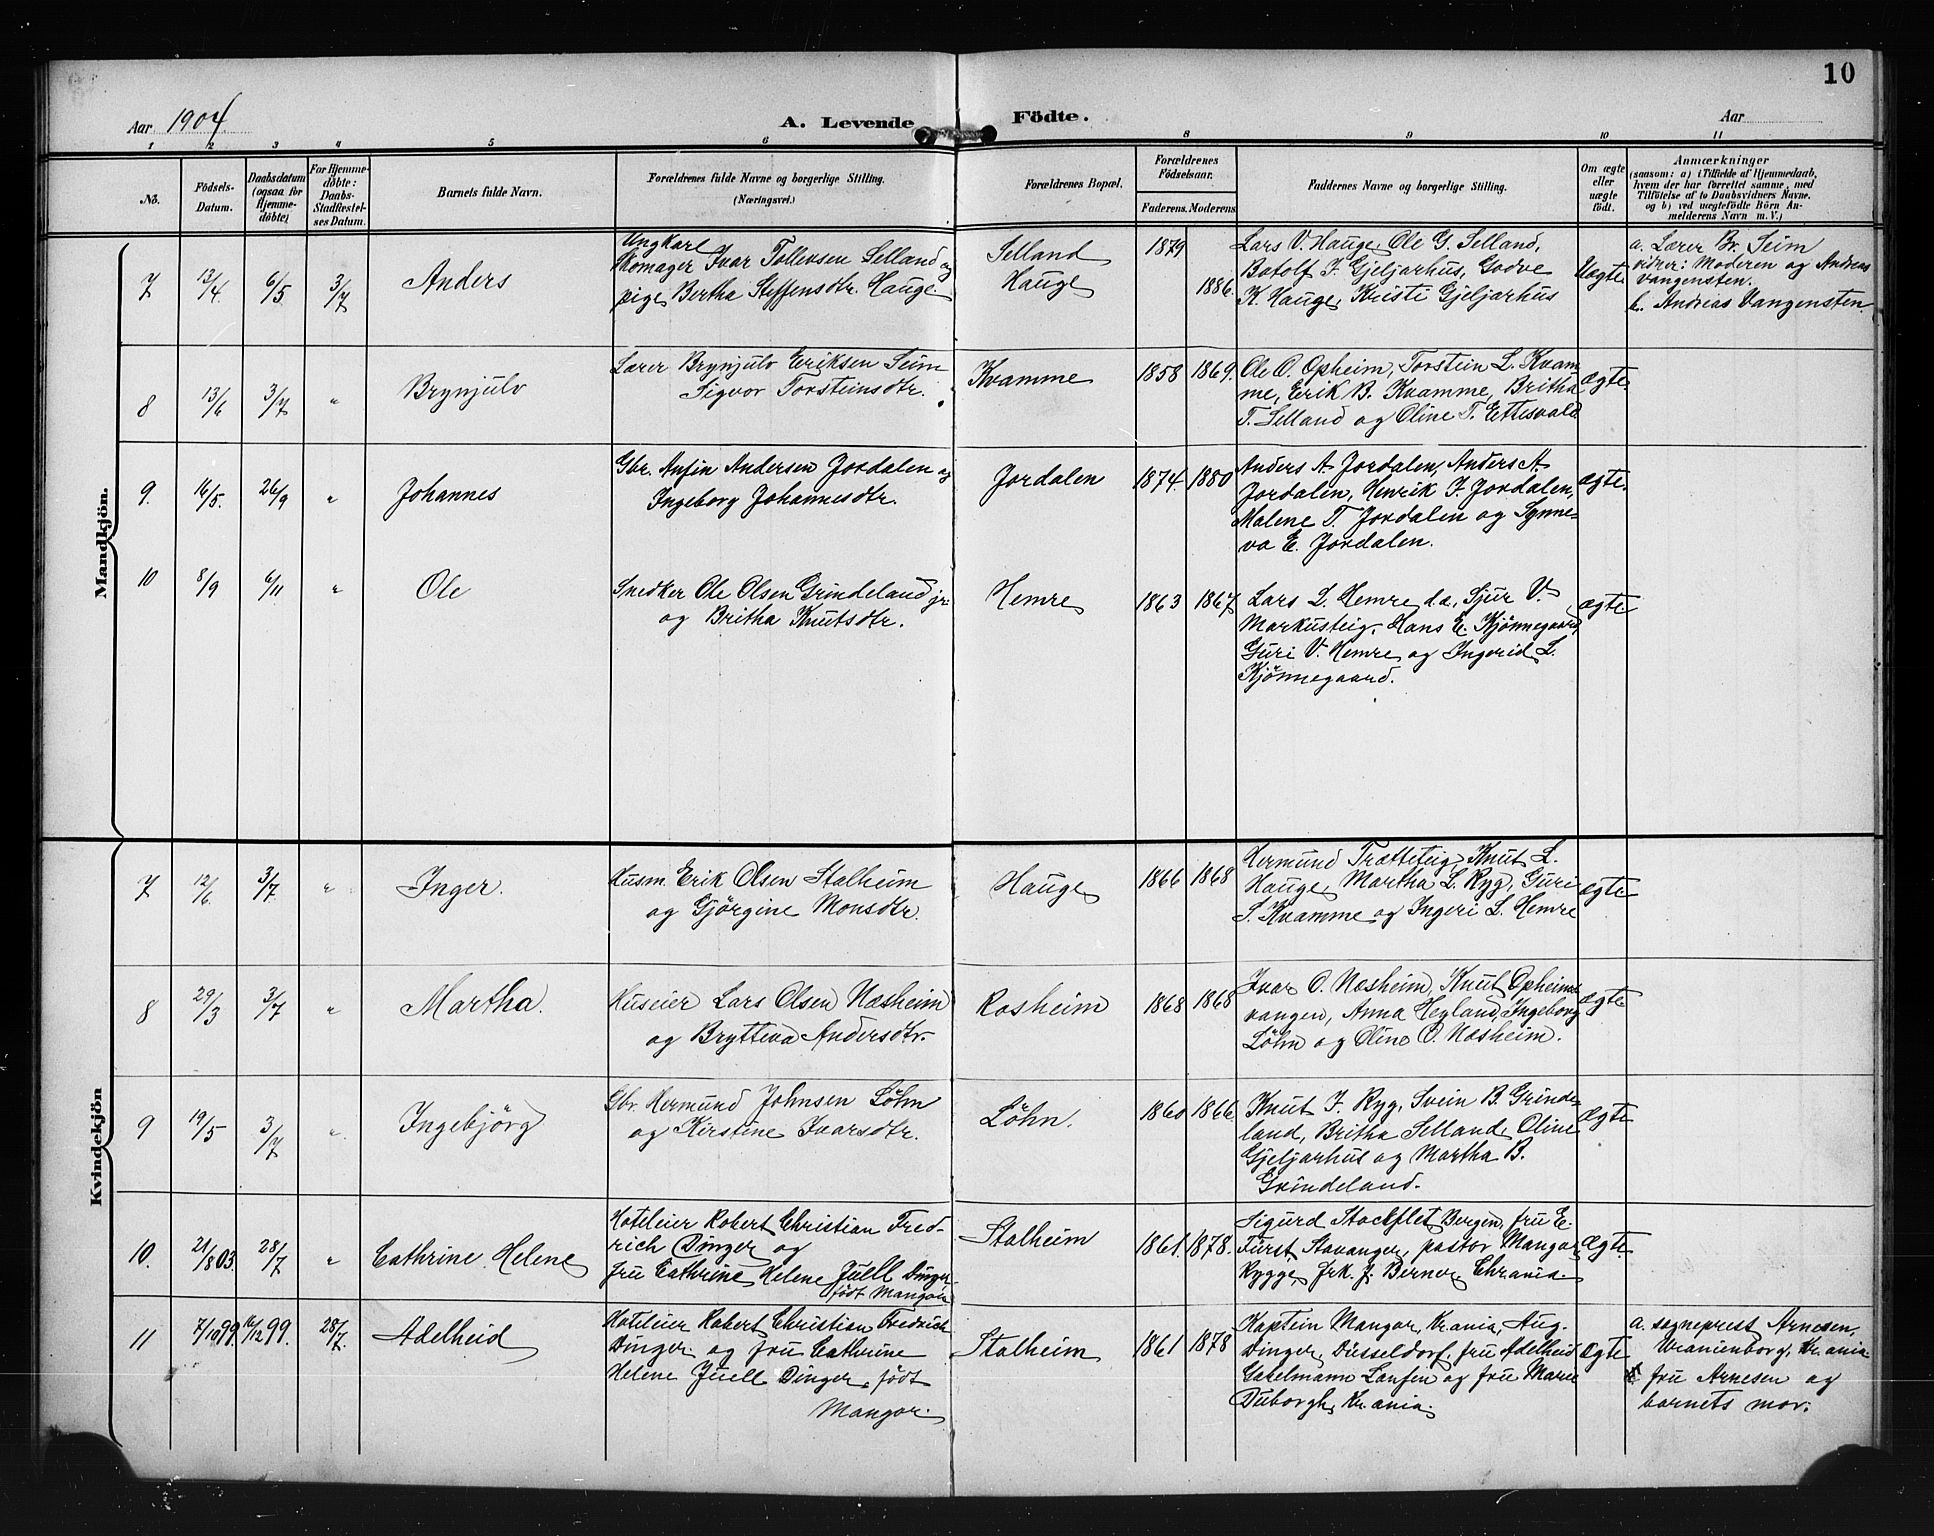 10
Aar 1904 A. Levende Födte. Aar
1 2 3 4 5 6 8 9 10 11
No.
Födsels-
Datum.
Daabsdatum
(ogsaa for
Hjemme-
døbte)
For Hjemme-
døbte:
Daabs-
Stadfæstel-
ses Datum.
Barnets fulde Navn.
Forældrenes fulde Navne og borgerlige Stilling.
(Næringsvei.)
Forældrenes Bopæl.
Forældrenes
Födselsaar.
Faderens. Moderens.
Faddernes Navne og borgerlige Stilling.
Om ægte
eller
uægte
født.
Anmærkninger
(saasom: a) i Tilfælde af Hjemmedaab,
hvem der har forrettet samme, med
Tilföielse af to Daabsvidners Navne,
og b) ved uægtefödte Börn An-
melderens Navn m. V.)
Mandkjön.
7 13/4 6/5 3/7 Anders
Ungkarl
Skomager Ivar Tollevsen Selland og
pige Bertha Steffensdtr. Hauge
Selland
Hauge
1879
1886.
Lars V. Hauge, Ole G. Selland,
Botolf I. Gjeljarhus, Godve
K. Hauge, Kristi Gjeljarhus
Uægte
a. Lærer Br. Seim
vidner: Moderen og Andreas
Vangensten.
b. Andreas Vangensten.
8 13/6 3/7 " Brynjulv
Lærer Brynjulv Eriksen Seim
Sigvor Torsteinsdtr.
Kvamme 1858 1869.
Ole O. Opheim, Torstein L. Kvam-
me, Erik B. Kvamme, Britha
T. Selland og Oline T. Ettesvold
ægte.
9. 16/5. 26/9 " Johannes
Gbr. Anfin Andersen Jordalen og
Ingeborg Johannesdtr.
Jordalen 1874. 1880
Anders A. Jordalen, Anders A.
Jordalen, Henrik I. Jordalen,
Malene T. Jordalen og Synne-
va E. Jordalen.
ægte.
10 8/9 6/11 " Ole
Snedker Ole Olsen Grindeland jr.
og Britha Knutsdtr.
Hemre 1863 1867
Lars L. Hemre d.æ., Sjur V.
Markusteig, Hans E. Kjönnegaard,
Guri V. Hemre og Ingerid L.
Kjönnegaard.
ægte
Kvindekjön
7 12/6. 3/7. " Inger.
Husm. Erik Olsen Stalheim
og Gjørgine Monsdtr.
Hauge 1866 1868
Hermund Trætteteig, Knut L.
Hauge, Martha L. Ryg, Guri
S. Kvamme og Ingeri L. Hemre
ægte
8 29/3 3/7 " Martha.
Huseier Lars Olsen Næsheim
og Brytteva Andersdtr.
Rosheim 1868 1868
Ivar O. Næsheim, Knut Opheims-
vangen, Anna Heyland, Ingeborg
Löhn og Oline O. Næsheim.
ægte
9 19/5 3/7 " Ingebjörg
Gbr. Hermund Johnsen Löhn
og Kirstine Ivarsdtr.
Löhn. 1860 1866.
Knut I. Ryg, Svein B. Grinde-
land, Britha Selland, Oline
Gjeljarhus og Martha B.
Grindeland.
Ægte
10. 21/8 03. 28/7 " Cathrine Helene
Hoteleier Robert Christian Fred-
rich Dinger og
fru Cathrine Helene Juell Dinger
født Mangor
Stalheim 1861. 1878.
Sigurd Stockflet, Bergen, fru E.
Fürst, Stavanger, pastor Mangor,
Rygge, frk. J. Berner, Chr.ania.
Ægte.
11 7/10 99. 16/12 99. 28/7. Adelheid
Hoteleier Robert Christian Fredrich
Dinger og fru Cathrine
Helene Juell Dinger, født
Mangor.
Stalheim 1861 1878
Kaptein Mangor, Kr.ania, Aug.
Dinger, Düsseldorf, fru Adelheid
Gabelmann Lansen og fru Marie
Duborgh, Kr.ania.
Ægte
a. sogneprest Arnesen,
Uranienborg, Kr.ania
fru Arnesen og
barnets mor.